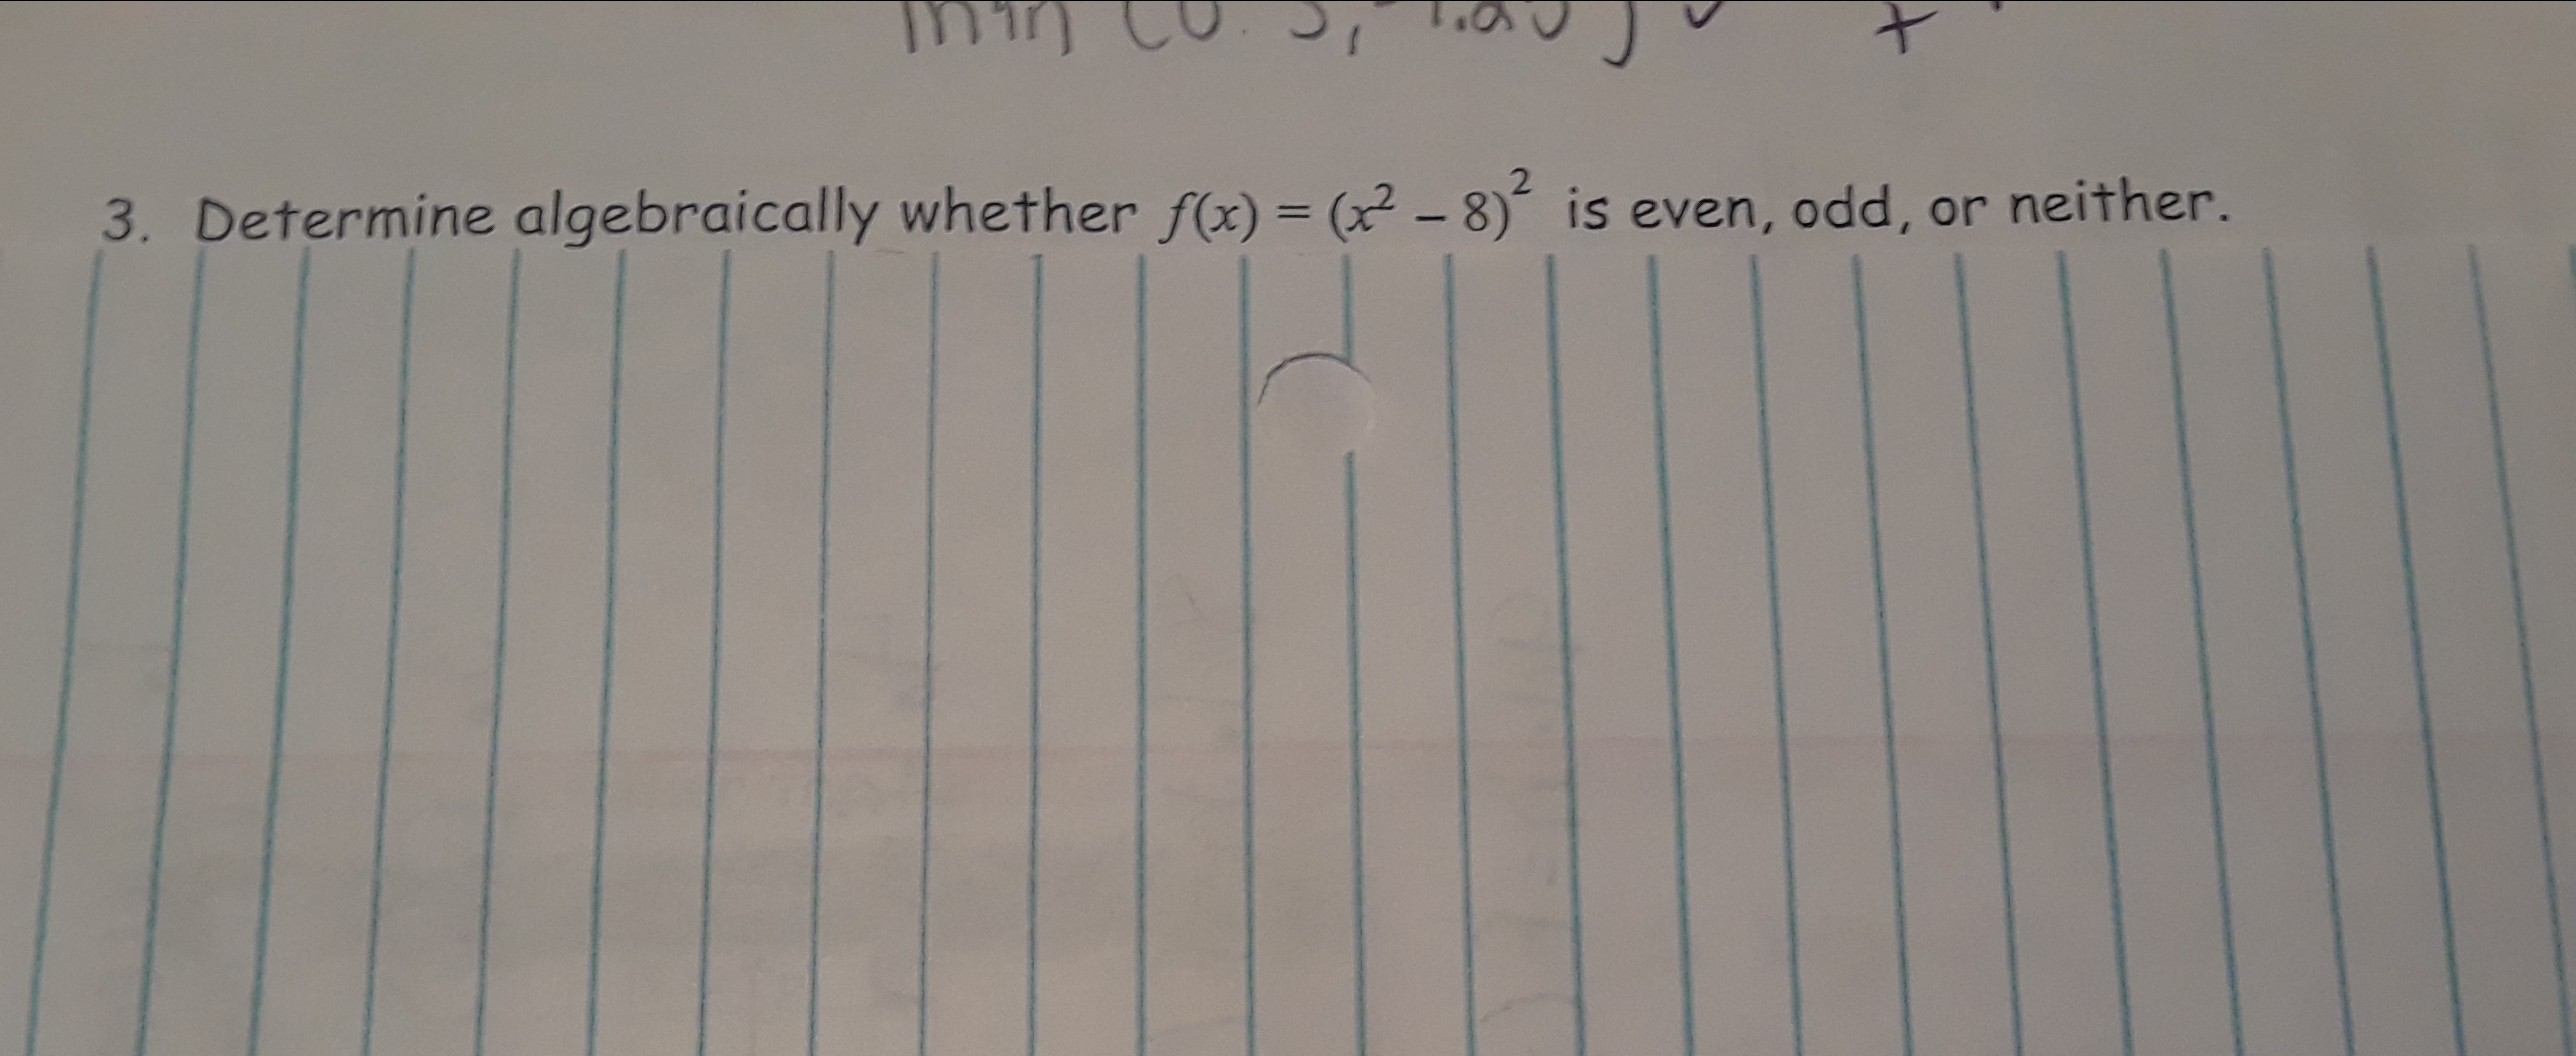 min
3. Determine algebraically whether f(x) = (x² – 8)² is even, odd, or neither.